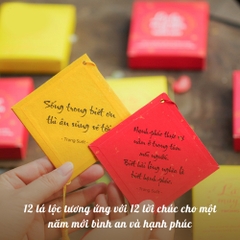 Sống trong biết ơn
thì ân sủng vô tận
Hạnh phúc thực sự
nằm ở trong tâm
mỗi người.
Biết hài lòng nghĩa là
biết hạnh phúc.
12 lá lộc tương ứng với 12 lời chúc cho một
năm mới bình an và hạnh phúc